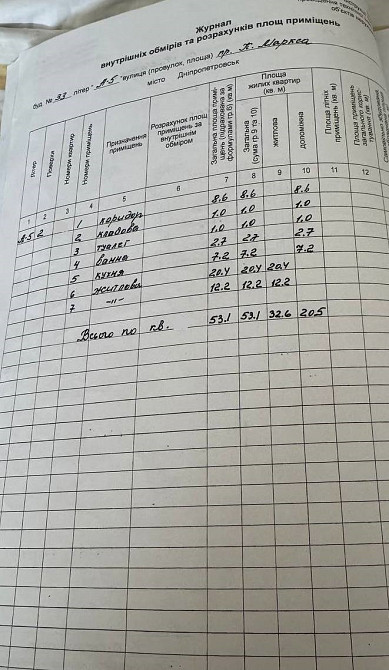 Журнал
внутрішніх обмірів та розрахунків площ приміщень
буд. № 33 літер "А-5" вулиця (провулок, площа) пр. К. Маркса
місто Дніпропетровськ
Літер
Поверхи
Номери квартир
Номери приміщень
Призначення приміщень
Розрахунок площ приміщень за внутрішнім обміром
Загальна площа приміщень (підрахована за формулами гр.6) (кв м)
Площа жилих квартир (кв. м)
Загальна (сума гр.9 та 10)
житлова
допоміжна
Площа літніх приміщень (кв. м)
Площа приміщень загального користування (кв. м)
1 2 3 4 5 6 7 8 9 10 11 12
А-5 2 1 коридор 8.6 8.6 8.6
2 кладова 1.0 1.0 1.0
3 туалет 1.0 1.0 1.0
4 ванна 2.7 2.7 2.7
5 кухня 7.2 7.2 7.2
6 житлова 20.4 20.4 20.4
7 -"- 12.2 12.2 12.2
Всього по кв. 53.1 53.1 32.6 20.5